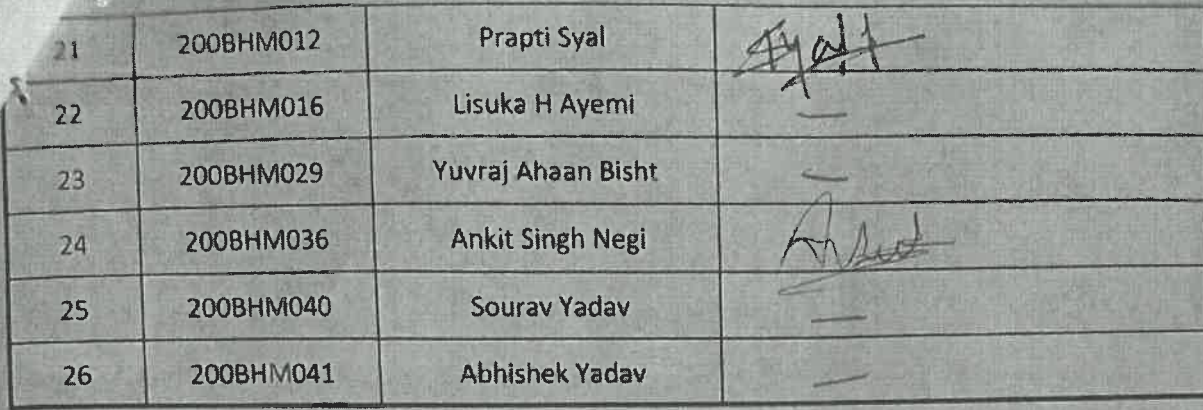 21 200BHM012 Prapti Syal
22 200BHM016 Lisuka H Ayemi —
23 200BHM029 Yuvraj Ahaan Bisht —
24 200BHM036 Ankit Singh Negi
25 200BHM040 Sourav Yadav —
26 200BHM041 Abhishek Yadav —